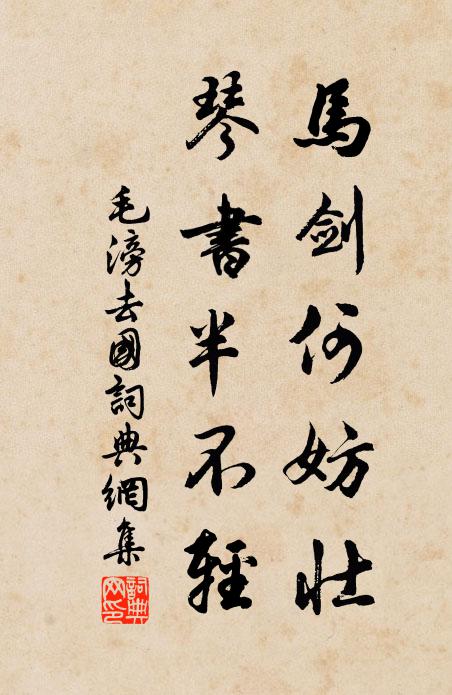 馬劍何妨壯
琴書半不輕
毛滂去國詞典網集
詞典網印